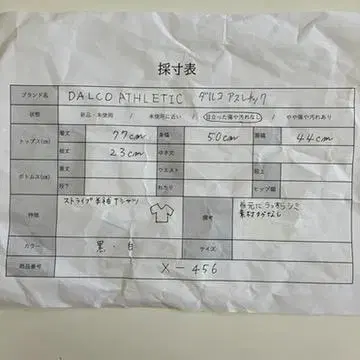 採寸表
ブランド名 DALCO ATHLETIC ダルコ アスレチック
状態 新品・未使用 / 未使用に近い / 目立った傷や汚れなし / やや傷や汚れあり
トップス(cm) 着丈 77cm 身幅 50cm 肩幅 44cm
袖丈 23cm ゆき丈
ボトムス(cm) 着丈 ウエスト 股上
股下 わたり ヒップ幅
特徴 ストライプ半袖Tシャツ 備考 首元にうっすらシミ
素材タグなし
カラー 黒・白 サイズ
商品番号 X-456